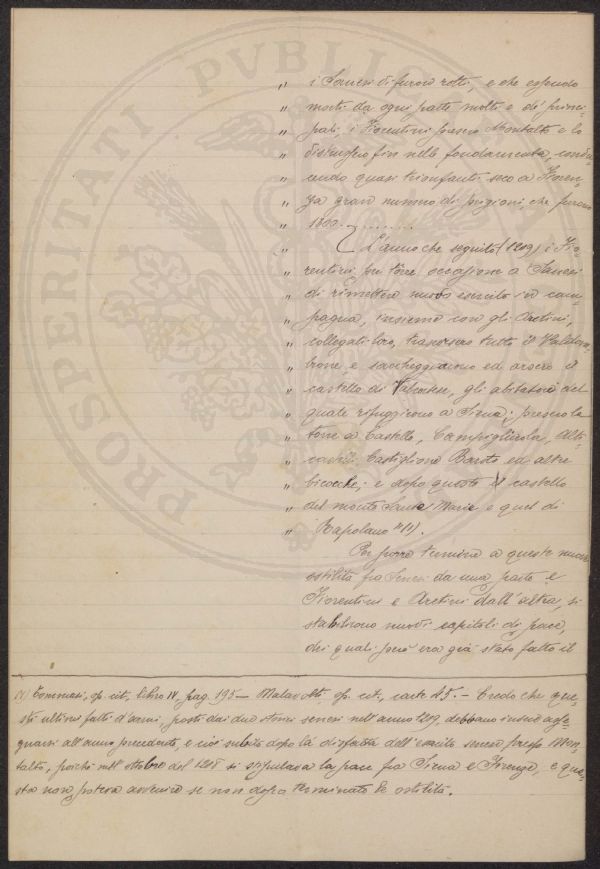 PROSPERITATI PVBLICAE
" i Sanesi si furono rotti, e che essendo
" morti da ogni parte molti e de' princi-
" pali, i Fiorentini presero Montalto e lo
" distrussero fin nelle fondamenta, condu-
" cendo quasi trionfanti seco a Fioren-
" za gran numero di prigioni che furono
" 1300........
" L'anno che seguitò (1209) i Fio-
" rentini, per torre occasione a Sanesi
" di rimettere nuovo esercito in cam-
" pagna, insieme con gli Aretini,
" collegati loro, trascorsero tutto il Valdam-
" brone, e saccheggiarono ed arsero il
" castello di gli abitatori del
" quale rifuggirono a Siena; presero la
" torre a Castello, Campigliola, Alti-
" Castiglione Barote ed altre
" bicocche; e dopo questo il castello
" del monte Sante Marie e quel di
" Rapolano " (1).
Per porre termine a queste nuove
ostilità fra Senesi da una parte e
Fiorentini e Aretini dall'altra, si
stabilirono nuovi capitoli di pace,
dei quali però era già stato fatto il
(1) Tommasi, op. cit, libro IV, pag. 195 — Malavolti, op. cit., carte 45. - Credo che que-
sti ultimi fatti d'armi, posti dai due storici senesi nell'anno 1209, debbano invece asse-
gnarsi all'anno precedente, e cioè subito dopo la disfatta dell'esercito senese presso Mon-
talto, poichè nell'ottobre del 1208 si stipulava la pace fra Siena e Firenze, e que-
sta non poteva avvenire se non dopo terminate le ostilità.